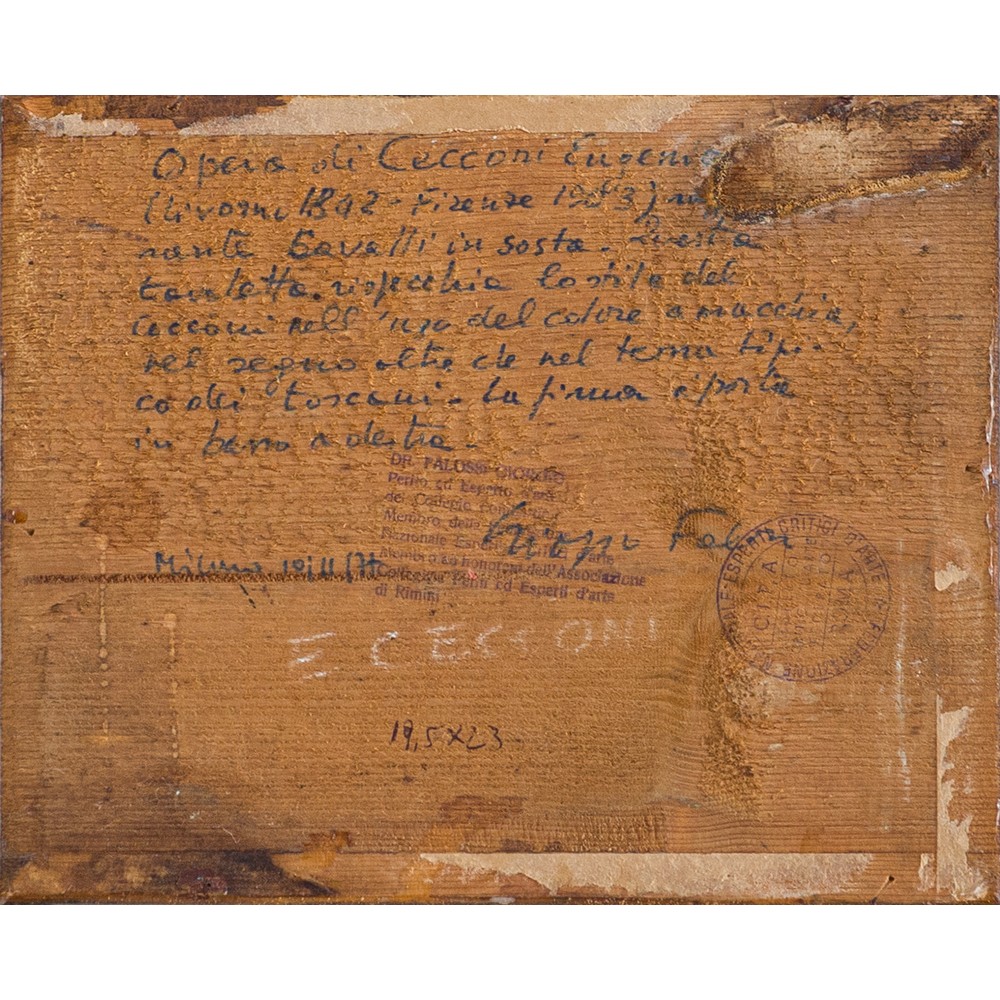 Opera di Cecconi Eugenio
(Livorno 1842 - Firenze 1903)
nante Cavalli in sosta. Questa
tavoletta rispecchia lo stile del
Cecconi nell'uso del colore a macchia,
nel segno oltre che nel tema tipi-
co dei toscani. La firma è posta
in basso a destra.
DR. FALOSSI GIORGIO
Perito ed Esperto d'arte
del Collegio
Membro della
Nazionale Esperti Critici d'arte
Membro ad honorem dell'Associazione
Collegiale Periti ed Esperti d'arte
di Rimini
Milano 10/11/71
E CECCONI
19,5X23
FEDERAZIONE NAZIONALE ESPERTI CRITICI D'ARTE
ROMA